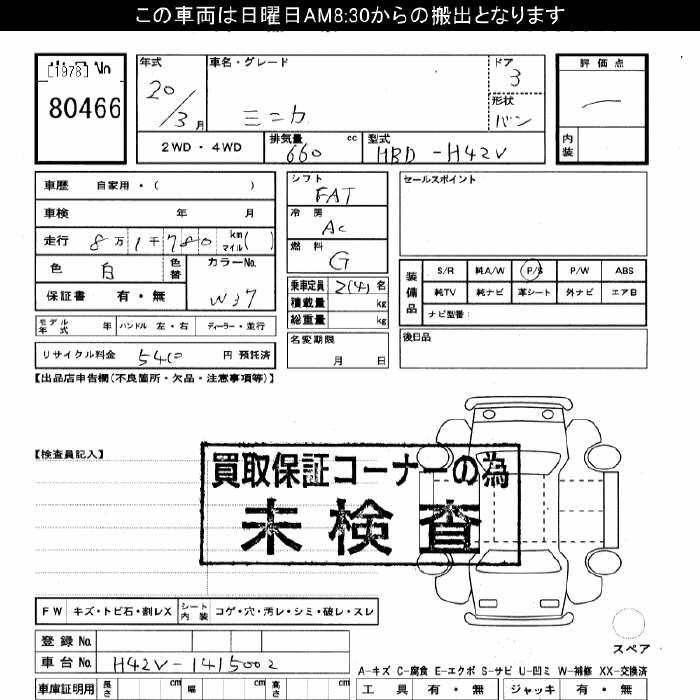 この車両は日曜日AM8:30からの搬出となります
[1978] No
80466
年式 20/3月
車名・グレード
ミニカ
ドア 3
形状 バン
評価点
内装
2WD・4WD
排気量 660 cc
型式 HBD-H42V
車歴 自家用・( )
車検 年 月
走行 8万1千780 km マイル( )
色 白 色替
カラーNo. W37
保証書 有・無
モデル年式 年 ハンドル 左・右 ディーラー・並行
リサイクル料金 5410 円 預託済
シフト FAT
冷房 AC
燃料 G
乗車定員 2(4) 名
積載量 kg
総重量 kg
名変期限 月 日
セールスポイント
装備品
S/R 純A/W P/S P/W ABS
純TV 純ナビ 革シート 外ナビ エアB
ナビ型番:
後日品
【出品店申告欄(不良箇所・欠品・注意事項等)】
【検査員記入】
買取保証コーナーの為
未検査
FW キズ・トビ石・割レX シート内装 コゲ・穴・汚レ・シミ・破レ・スレ
スペア
登録No.
車台No. H42V-1415002
A-キズ C-腐食 E-エクボ S-サビ U-凹ミ W-補修 XX-交換済
車庫証明用 長さ cm 幅 cm 高さ cm
工具 有・無 ジャッキ 有・無